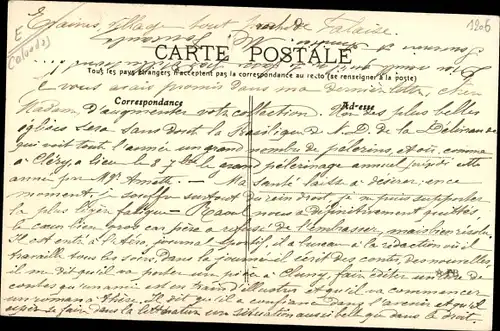 E
(Calvados)
Eraines, village tout proche de Falaise.
1206
CARTE POSTALE
Tous les pays étrangers n'acceptent pas la correspondance au recto (se renseigner à la poste)
Correspondance
Adresse
Je vous avais promis dans ma dernière lettre, chère
Madame, d'augmenter votre collection. Une des plus belles
églises sera sans doute la Basilique de N. D. de la Délivrande
qui voit toute l'année un grand nombre de pèlerins, et où, comme
à Cléry a lieu le 8 7bre le grand pèlerinage annuel présidé cette
année par Mgr Amette. — Ma santé laisse à désirer, en ce
moment, je souffre surtout du rein droit, je ne puis supporter
la plus légère fatigue. — nous a définitivement quittés,
le cœur bien gros car père a refusé de l'embrasser, mais bien résolu.
Il est entré à l'Aéro, journal sportif, il a bureau à la rédaction où il
travaille tous les soirs. Dans la journée il écrit des contes, des nouvelles
il me dit qu'il va porter une pièce à Cluny, faire éditer un livre de
contes qu'un ami est en train d'illustrer et qu'il va commencer
un roman à thèse. Il dit qu'il a confiance dans l'avenir et qu'il
espère se faire dans la littérature une situation aussi belle que dans le droit.